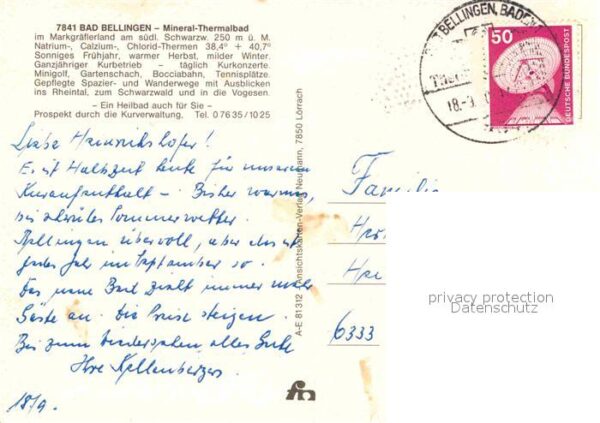 7841 BAD BELLINGEN – Mineral-Thermalbad
im Markgräflerland am südl. Schwarzw. 250 m ü. M.
Natrium-, Calzium-, Chlorid-Thermen 38,4° + 40,7°
Sonniges Frühjahr, warmer Herbst, milder Winter.
Ganzjähriger Kurbetrieb – täglich Kurkonzerte.
Minigolf, Gartenschach, Bocciabahn, Tennisplätze.
Gepflegte Spazier- und Wanderwege mit Ausblicken
ins Rheintal, zum Schwarzwald und in die Vogesen.
– Ein Heilbad auch für Sie –
Prospekt durch die Kurverwaltung. Tel. 0 76 35 / 10 25
Liebe
Es ist Halbzeit heute für unseren
Kuraufenthalt – Bisher warmes,
bei schwüles Sommerwetter.
Bellingen übervoll, aber das ist
jedes Jahr im September so.
Das neue Bad zieht immer mehr
Gäste an. Die Preise steigen.
Bis zum Wiedersehen alles Gute
Ihre Kellenbergers
18/9.
A-E 81312 Ansichtskarten-Verlag Neumann, 7850 Lörrach
BELLINGEN, BADEN
18.-9.
50
DEUTSCHE BUNDESPOST
Familie
6333
privacy protection
Datenschutz